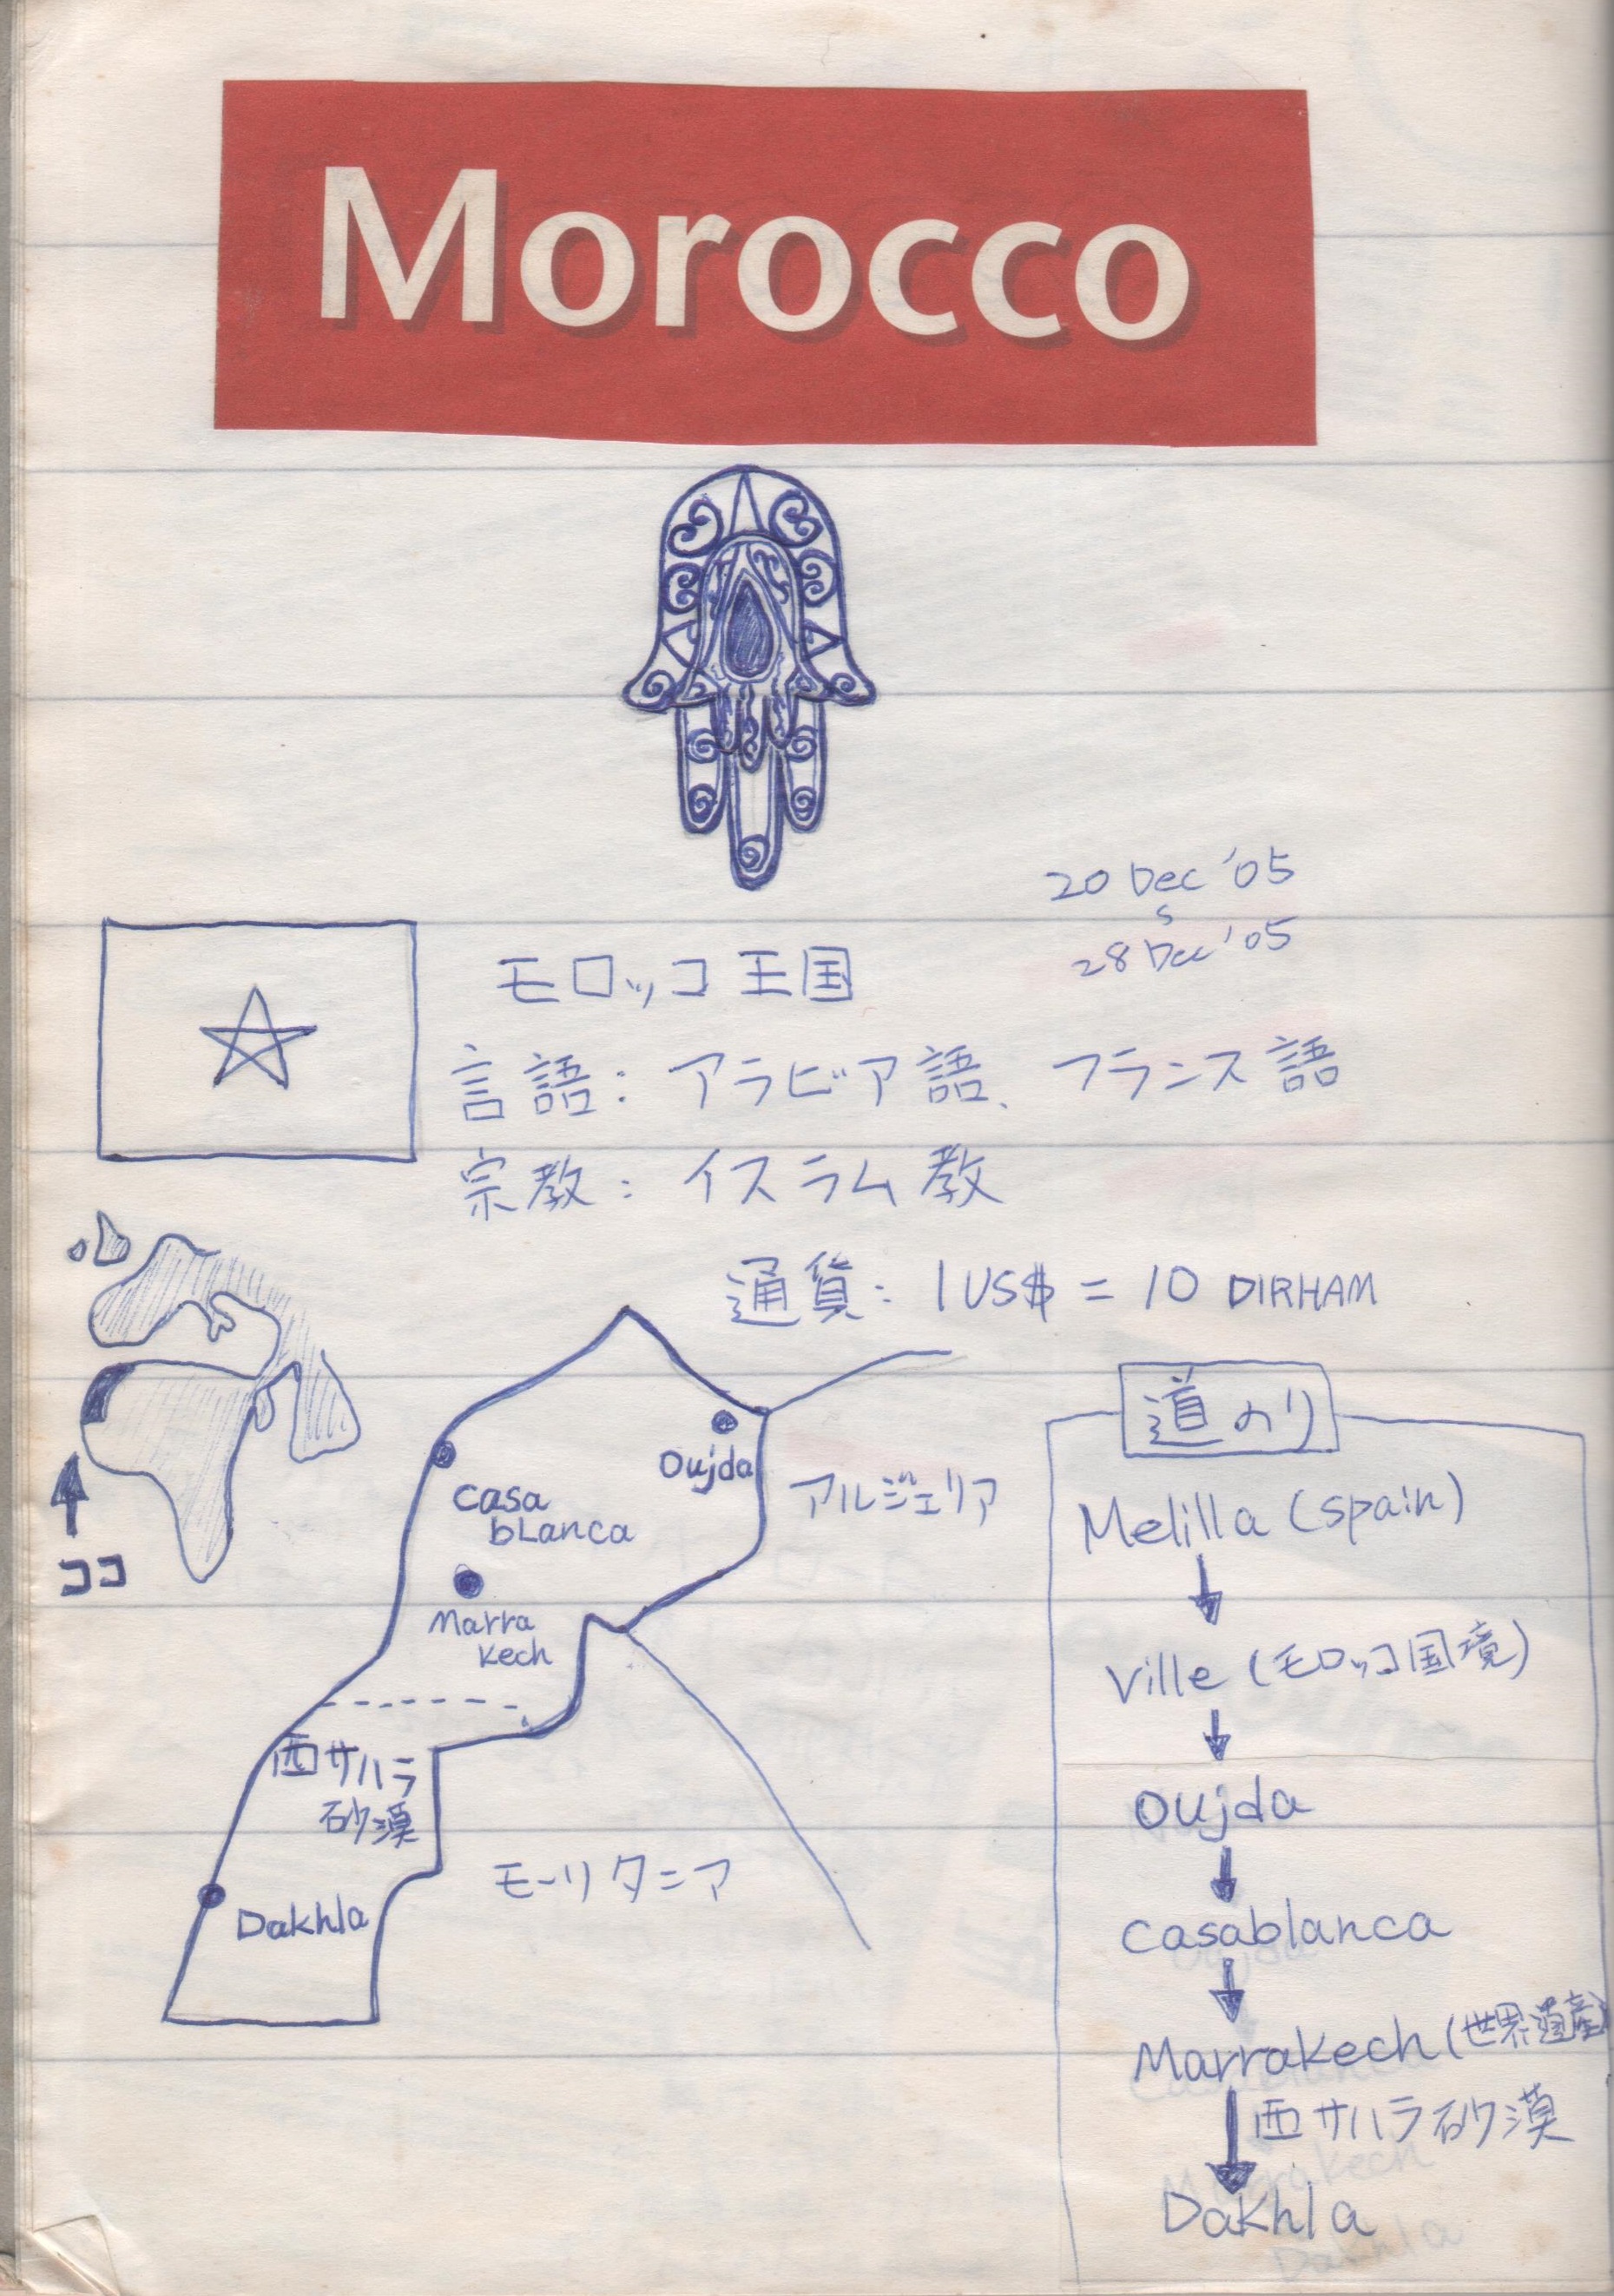 Morocco
20 Dec '05
S
28 Dec '05
モロッコ 王国
言語: アラビア語、フランス語
宗教: イスラム教
通貨: 1 US$ = 10 DIRHAM
ココ
Casa
bLanca
Marra
kech
Oujda
アルジェリア
西サハラ
砂漠
Dakhla
モーリタニア
道のり
Melilla (spain)
Ville (モロッコ国境)
Oujda
Casablanca
Marrakech (世界遺産)
西サハラ砂漠
Dakhla